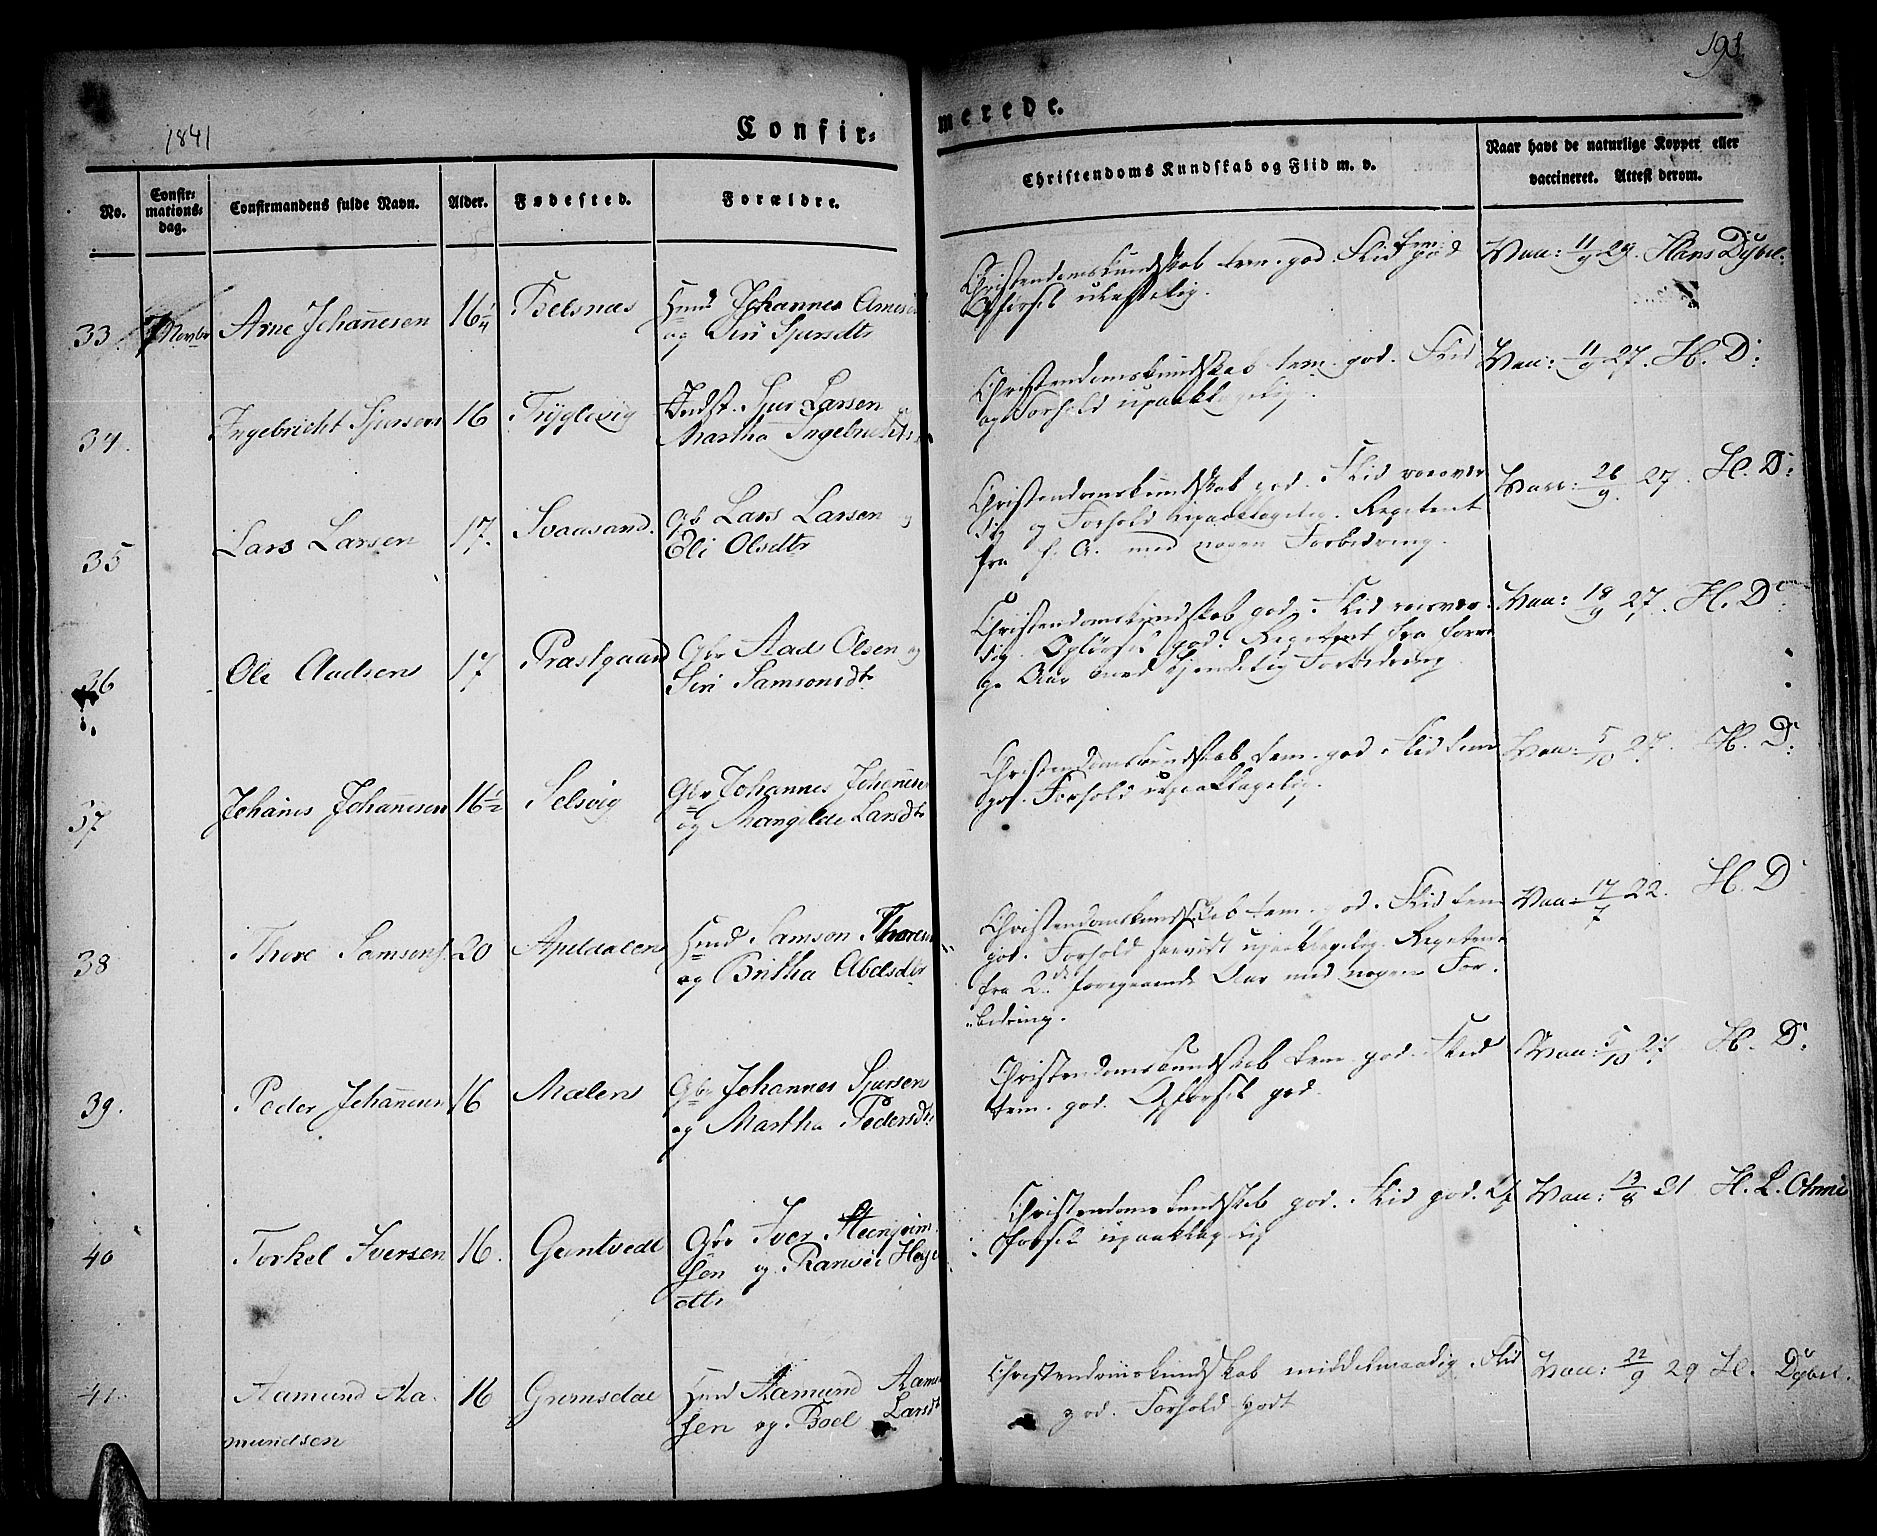 191
1841
Confir=
merede.
No.
Confir-
mations-
dag.
Confirmandens fulde Navn.
Alder.
Fødested.
Forældre.
Christendoms Kundskab og Flid m. v.
Naar havt de naturlige Kopper eller
vaccineret. Attest derom.
33 7 Novbr Arne Johannesen 16 1/4 Belsnæs Huusd Johannes Arnesen
og Siri Sjursdtr
Christendomskundskab tem. god. Flid tem: god
Opførsel ulastelig.
Vaa: 11/9 29. Hans Dybvl.
34. Ingebricht Sjursen 16 Tryglevig Indst. Sjur Larsen
Martha Ingebrichts
Christendomskundskab tem. god. Flid
og Forhold upaaklagelig.
Vaa: 11/9 27. H. D:
35 Lars Larsen 17. Svaasand. Gb Lars Larsen og
Eli Olsdtr
Christendomskundskab god. Flid roesvær
dig og Forhold upaaklagelig. Repetent
fra f. A. med nogen Forbedring.
Vacc: 26/9 27 H. D:
36 Ole Aadsen 17 Præstgaard Gbr Aad Olsen og
Siri Samsonsdtr
Christendomskundskab god. Flid roesvær-
dig. Opførsel god. Repetent fra forri
ge Aar med kjendelig Forbedring.
Vaa: 18/9 27. H. D:
37 Johannes Johannesen 16 1/2 Selsvig Gbr Johannes Johannesen
og Mangilde Larsdtr
Christendomskundskab tem. god. Flid tem
god. Forhold upaaklagelig.
Vaa: 5/10 27. H. D:
38 Thore Samsons. 20 Apeldalen Huusd Samson Thoresen
og Britha Abelsdtr
Christendomskundskab tem. god. Flid tem
god. Forhold saavidt upaaklagelig. Repetent
fra 2de foregaaende Aar med nogen For-
bedring.
Vaa: 17/7 22. H. D
39. Peder Johannesen 16 Malens Gbr Johannes Sjursen
og Martha Pedersdtr
Christendomskundskab tem. god. Flid
tem. god. Opførsel god.
Vaa: 5/10 27 H. D:
40 Torkel Iversen 16. Gjentvedt Gbr Iver Steengrim
sen og Ranvei Helge
dtr
Christendomskundskab god. Flid god. Op
førsel upaaklagelig
Vaa: 13/8 21 H. L. Olme
41. Aamund Aa- 16 Gremsdal Huusd Aamund Aamund
mundsen
sen og Boel Larsdt
Christendomskundskab middelmaadig. Flid
god. Forhold godt
Vaa: 22/9 29 H. Dybvl.